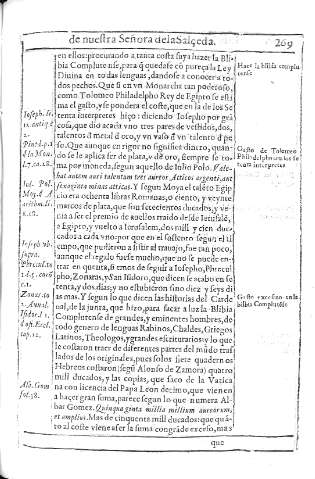 de nuestra Señora de la Salçeda. 269
en ellos: procurando a tanta costa suya hazer la Bi-
blia Complutense, para q̃ quedase cõ pureça la Ley
Divina en todas lenguas, dandose a conocer a to-
dos pechos. Que si en vn Monarcha tan poderoso,
como Tolomeo Philadelpho Rey de Egipto se esti
ma el gasto, y se pondera el coste, que en la de los Se
tenta interpretes hiço: diciendo Iosepho por grã
cosa, que dio a cada vno tres pares de vestidos, dos
talentos d metal d oro, y vn vaso d vn talento d pe
so. Que aunque en rigor no signifiet dinero, quan-
do se le aplica ser de plata, v de oro, siempre se to-
ma por moneda, segun aquello de Iulio Polo. Vale-
bat autem auri talentum tres aureos Atticos argenti, aut
sexaginta minas atticas. Y segun Moya el talẽto Egip
cio era ochenta libras Romanas, o ciento, y veynte
marcos de plata, que son seteciẽtos ducados, y ve-
nia a ser el premio de aquellos traido desde Ierusalẽ,
a Egipto, y vuelto a Ierusalem, dos mill y cien duca-
dos a cada vno: por que en el sustento segun el ti
empo, que pudieron asistir al trabajo, fue tan poco,
aunque el regalo fuese mucho, que no se puede en-
trar en quenta, si emos de seguir a Iosepho, Pherecul
pho, Zonaras, y dan Isidoro, que dicen le acabarõ en se
tenta, y dos dias; y no estubieron sino diez y seys di
as mas. Y segun lo que dicen las historias del Carde
nal, de la junta, que hizo, para sacar a luz la Biblia
Complutense de grandes, y eminentes hombres, de
todo genero de lenguas Rabinos, Chaldes, Griegos
Latinos, Theologos, y grandes escriturarios y lo que
le costaron traer de diferentes partes del mũdo tras
lados de los originales, pues solos siete quadernos
Hebreos costaron (segũ Alonso de Zamora) quatro
mill ducados, y las copias, que saco de la Vatica
na con licencia del Papa Leon decimo, que vienen
a hazer gran suma, parece segun lo que numera Al-
bar Gomez. Quinquaginta millia millium aureorum,
et amplius. Mas de cinquenta mill ducados: que quã-
to al coste viene a ser la suma con grãde exceso, mas
que
Hazer la biblia complu
tense
Gasto de Tolomeo
Philadelpho en los se
tenta interpretes
Gasto excesivo en la
biblia Complutense
Alb. Gom
fol. 38.